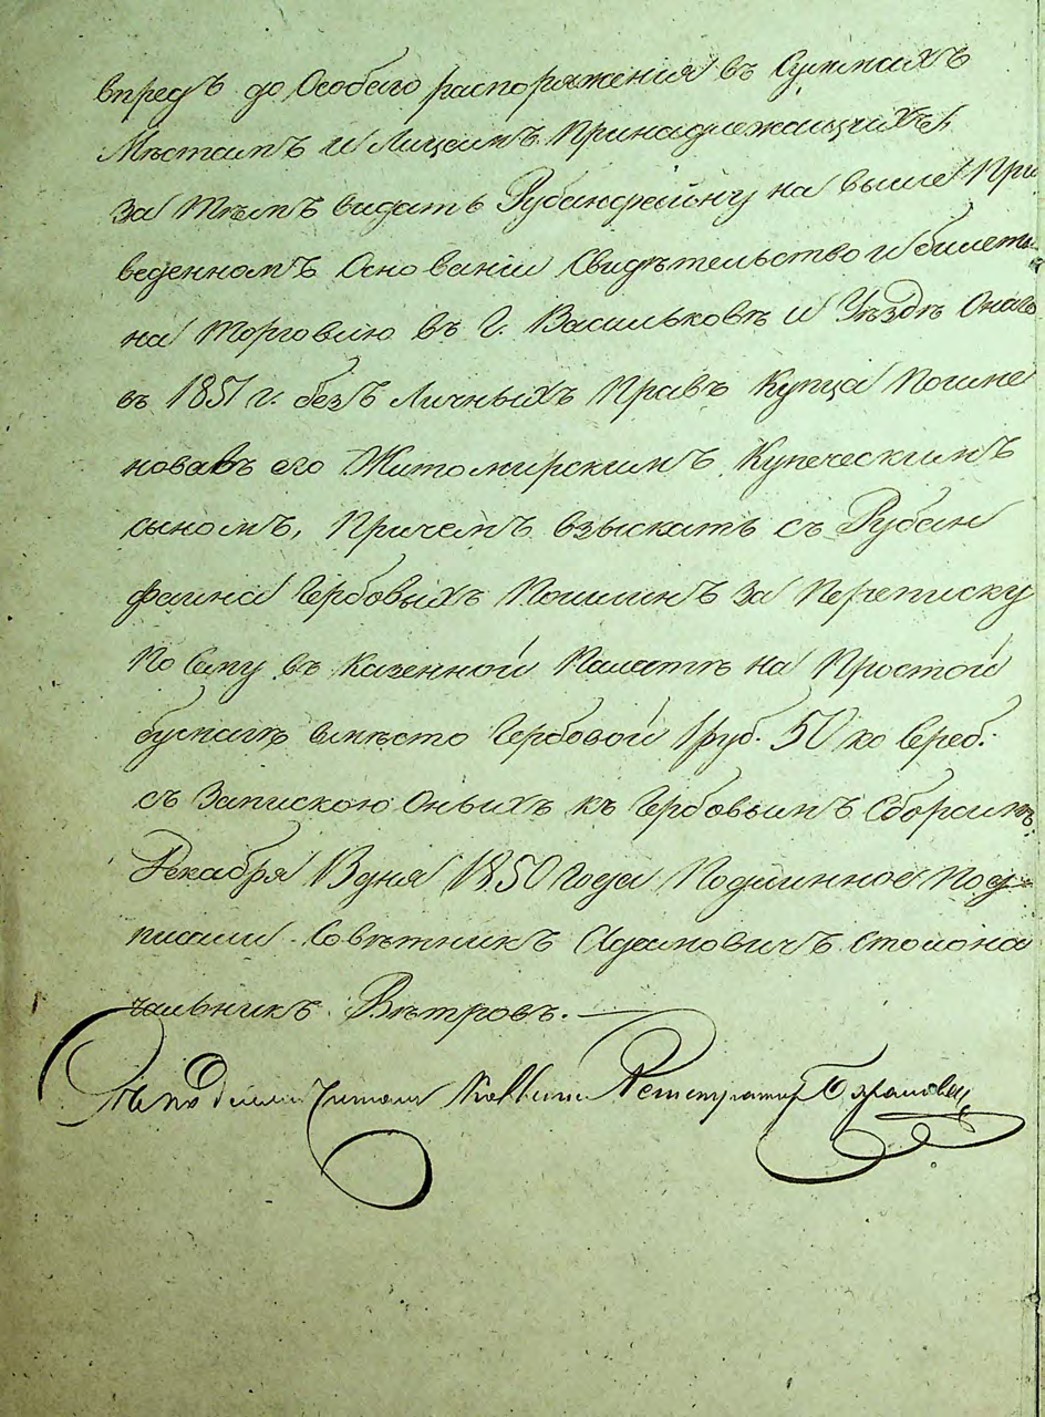 впредъ до Особаго распоряженія въ Суммахъ
Мѣстамъ и Лицамъ Принадлежащихъ,
За тѣмъ видать Рубанфайну на выше При
веденномъ Основаніи Свидѣтельство и билеты
на торговлю въ г. Васильковѣ и Уѣздѣ Онаго
въ 1851 г. безъ Личныхъ Правъ Купца Поиме
новавъ его Житомирскимъ Купеческимъ
сыномъ, Причемъ взыскать съ Рубан
файна Гербовыхъ Пошлинъ за Переписку
По Сему въ Казенной Палатѣ на Простой
бумагѣ вмѣсто Гербовой 1 руб. 50 ко Сереб.
съ Запискою Оныхъ къ Гербовымъ Сборамъ.
Декабря 13 дня 1850 Года Подлинное Под-
писали Совѣтникъ Адамовичъ Столона
чальникъ Вѣтровъ.
читалъ Регистраторъ